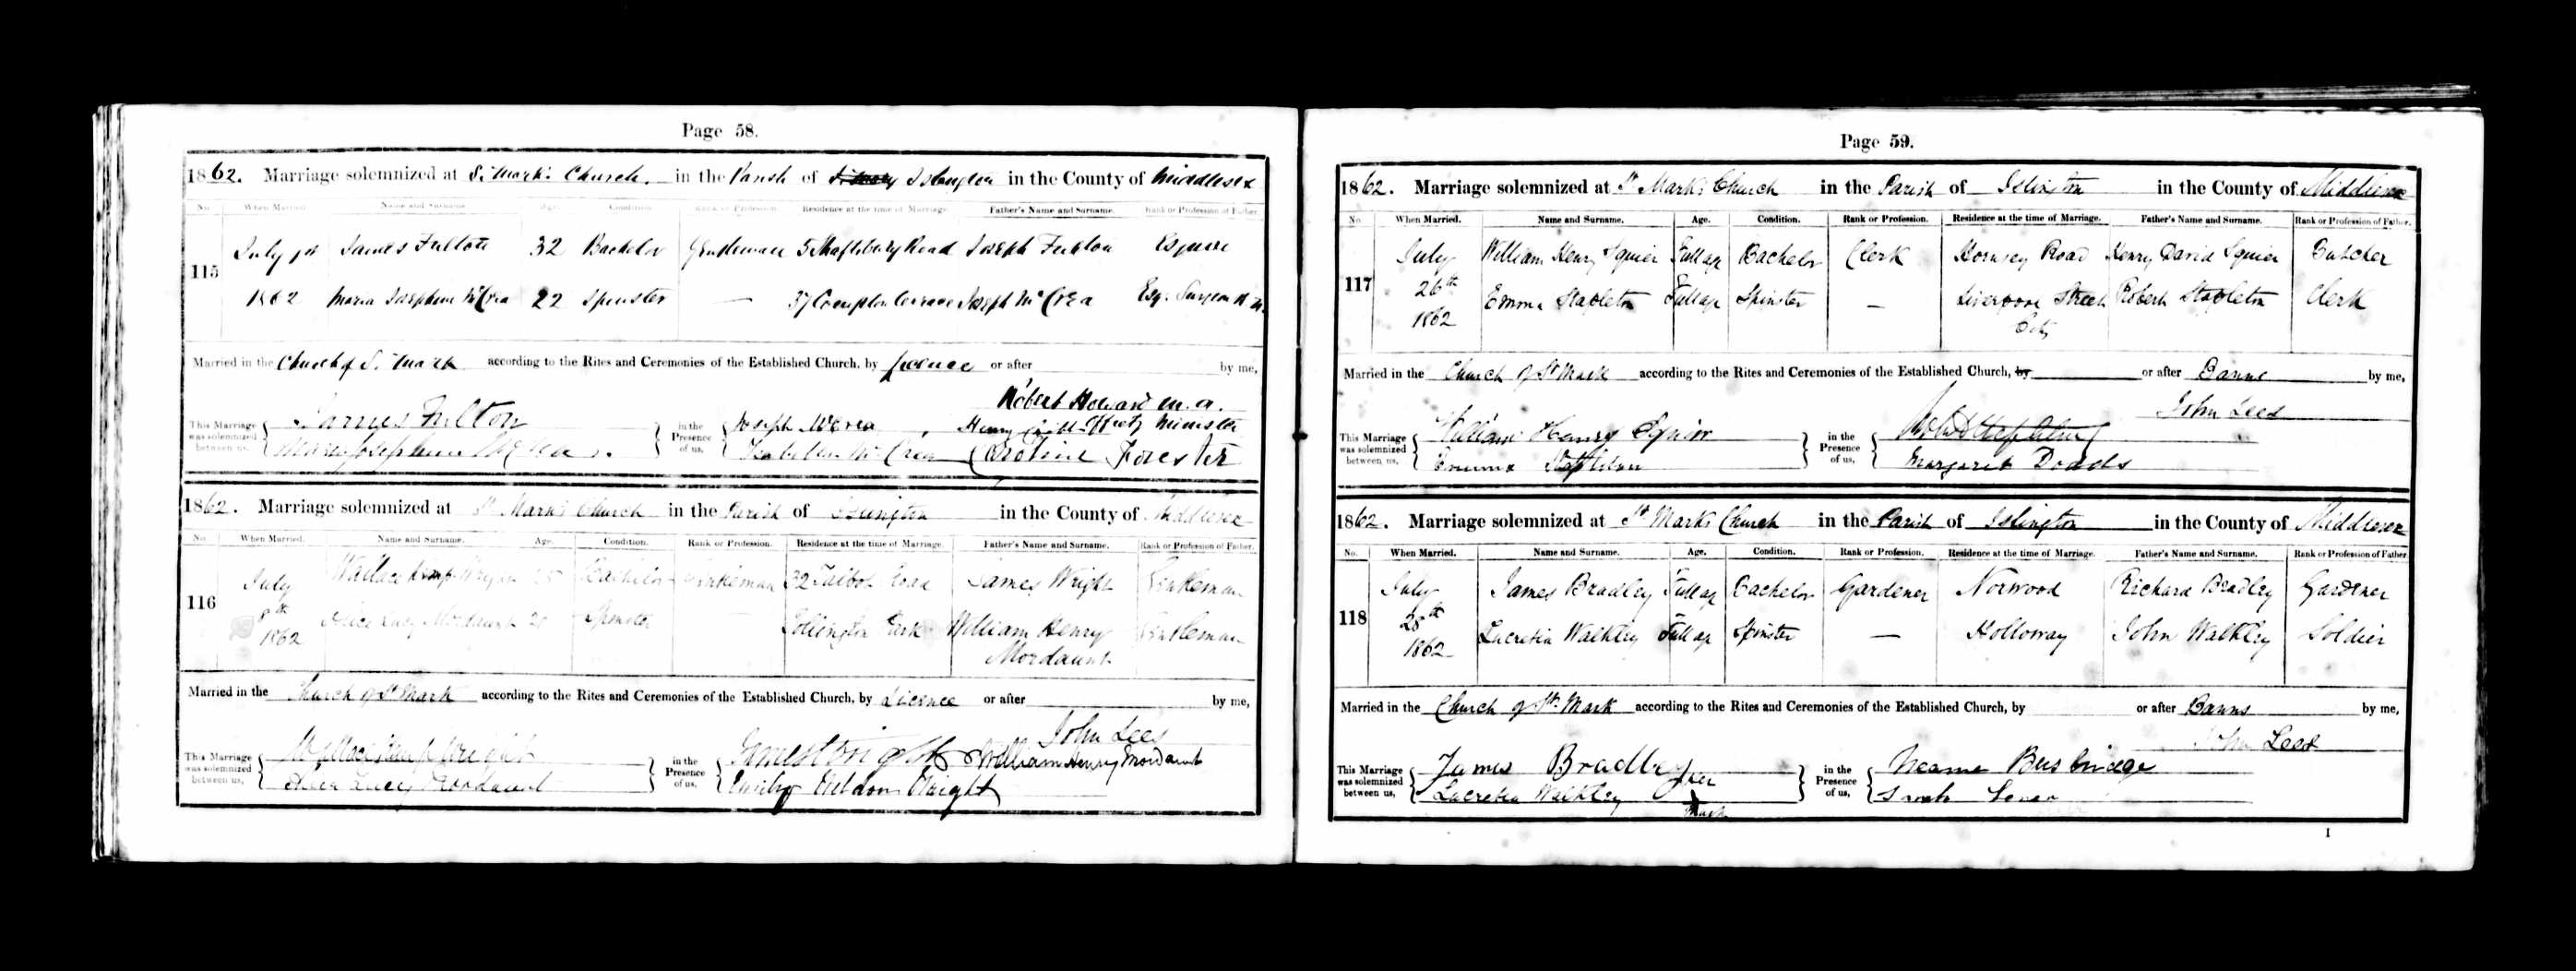 Page 58.
1862. Marriage solemnized at St. Mark's Church. in the Parish of Islington in the County of Middlesex
No. When Married. Name and Surname. Age. Condition. Rank or Profession. Residence at the time of Marriage. Father's Name and Surname. Rank or Profession of Father.
115 July 1st James Fulton 32 Bachelor Gentleman 5 Shaftsbury Road Joseph Fulton Esquire
1862 Maria Josephine McCrea 22 Spinster — 37 Compton Terrace Joseph McCrea Esq. Surgeon R.N.
Married in the Church of St. Mark according to the Rites and Ceremonies of the Established Church, by licence or after by me,
Robert Howard M.A.
This Marriage was solemnized between us, James Fulton in the Presence of us, Joseph McCrea Henry Minister
Maria Josephine McCrea. Isabella McCrea Forester
1862. Marriage solemnized at St. Mark's Church in the Parish of Islington in the County of Middlesex
No. When Married. Name and Surname. Age. Condition. Rank or Profession. Residence at the time of Marriage. Father's Name and Surname. Rank or Profession of Father.
116 July Wallace Kemp Wright Bachelor Gentleman 32 Talbot Road James Wright Gentleman
8th Alice Lucy Mordaunt Spinster Tollington Park William Henry Gentleman
1862 Mordaunt
Married in the Church of St. Mark according to the Rites and Ceremonies of the Established Church, by Licence or after by me,
John Lees
This Marriage was solemnized between us, Wallace Kemp Wright in the Presence of us, Ernest Wright William Henry Mordaunt
Alice Lucy Mordaunt Emily Weldon Wright
Page 59.
1862. Marriage solemnized at St. Mark's Church in the Parish of Islington in the County of Middlesex
No. When Married. Name and Surname. Age. Condition. Rank or Profession. Residence at the time of Marriage. Father's Name and Surname. Rank or Profession of Father.
117 July William Henry Squier Full age Bachelor Clerk Hornsey Road Henry David Squier Butcher
26th Emma Stapleton Full age Spinster — Liverpool Street Robert Stapleton Clerk
1862 City
Married in the Church of St. Mark according to the Rites and Ceremonies of the Established Church, by or after Banns by me,
John Lees
This Marriage was solemnized between us, William Henry Squier in the Presence of us, Stapleton
Emma Stapleton Margaret Doads
1862. Marriage solemnized at St. Mark's Church in the Parish of Islington in the County of Middlesex
No. When Married. Name and Surname. Age. Condition. Rank or Profession. Residence at the time of Marriage. Father's Name and Surname. Rank or Profession of Father.
118 July James Bradley Full age Bachelor Gardener Norwood Richard Bradley Gardener
28th Lucretia Walkley Full age Spinster — Holloway John Walkley Soldier
1862
Married in the Church of St. Mark according to the Rites and Ceremonies of the Established Church, by or after Banns by me,
John Lees
This Marriage was solemnized between us, James Bradley in the Presence of us, Neame Busbridge
Lucretia Walkley her Mark Sarah
I